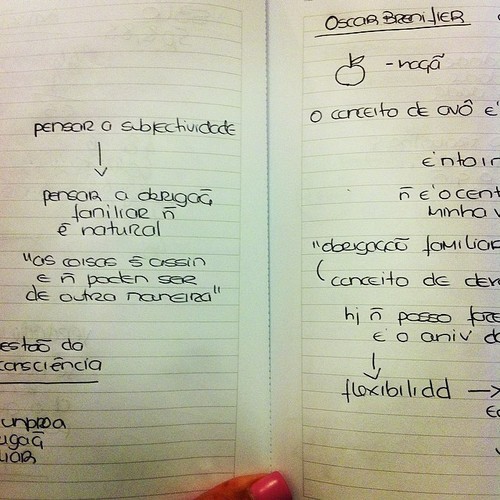 pensar a subjectividade
pensar a obrigaçã
familiar ñ
é natural
"as coisas é assin
e ñ poden ser
de outra maneira"
estão da
consciência
OSCAR BRENIFIER
- maçã
o conceito de avô é
ñ é o cent
minha
"obrigação familiar
conceito de
hj ñ posso
é o aniv d
flexibilidd